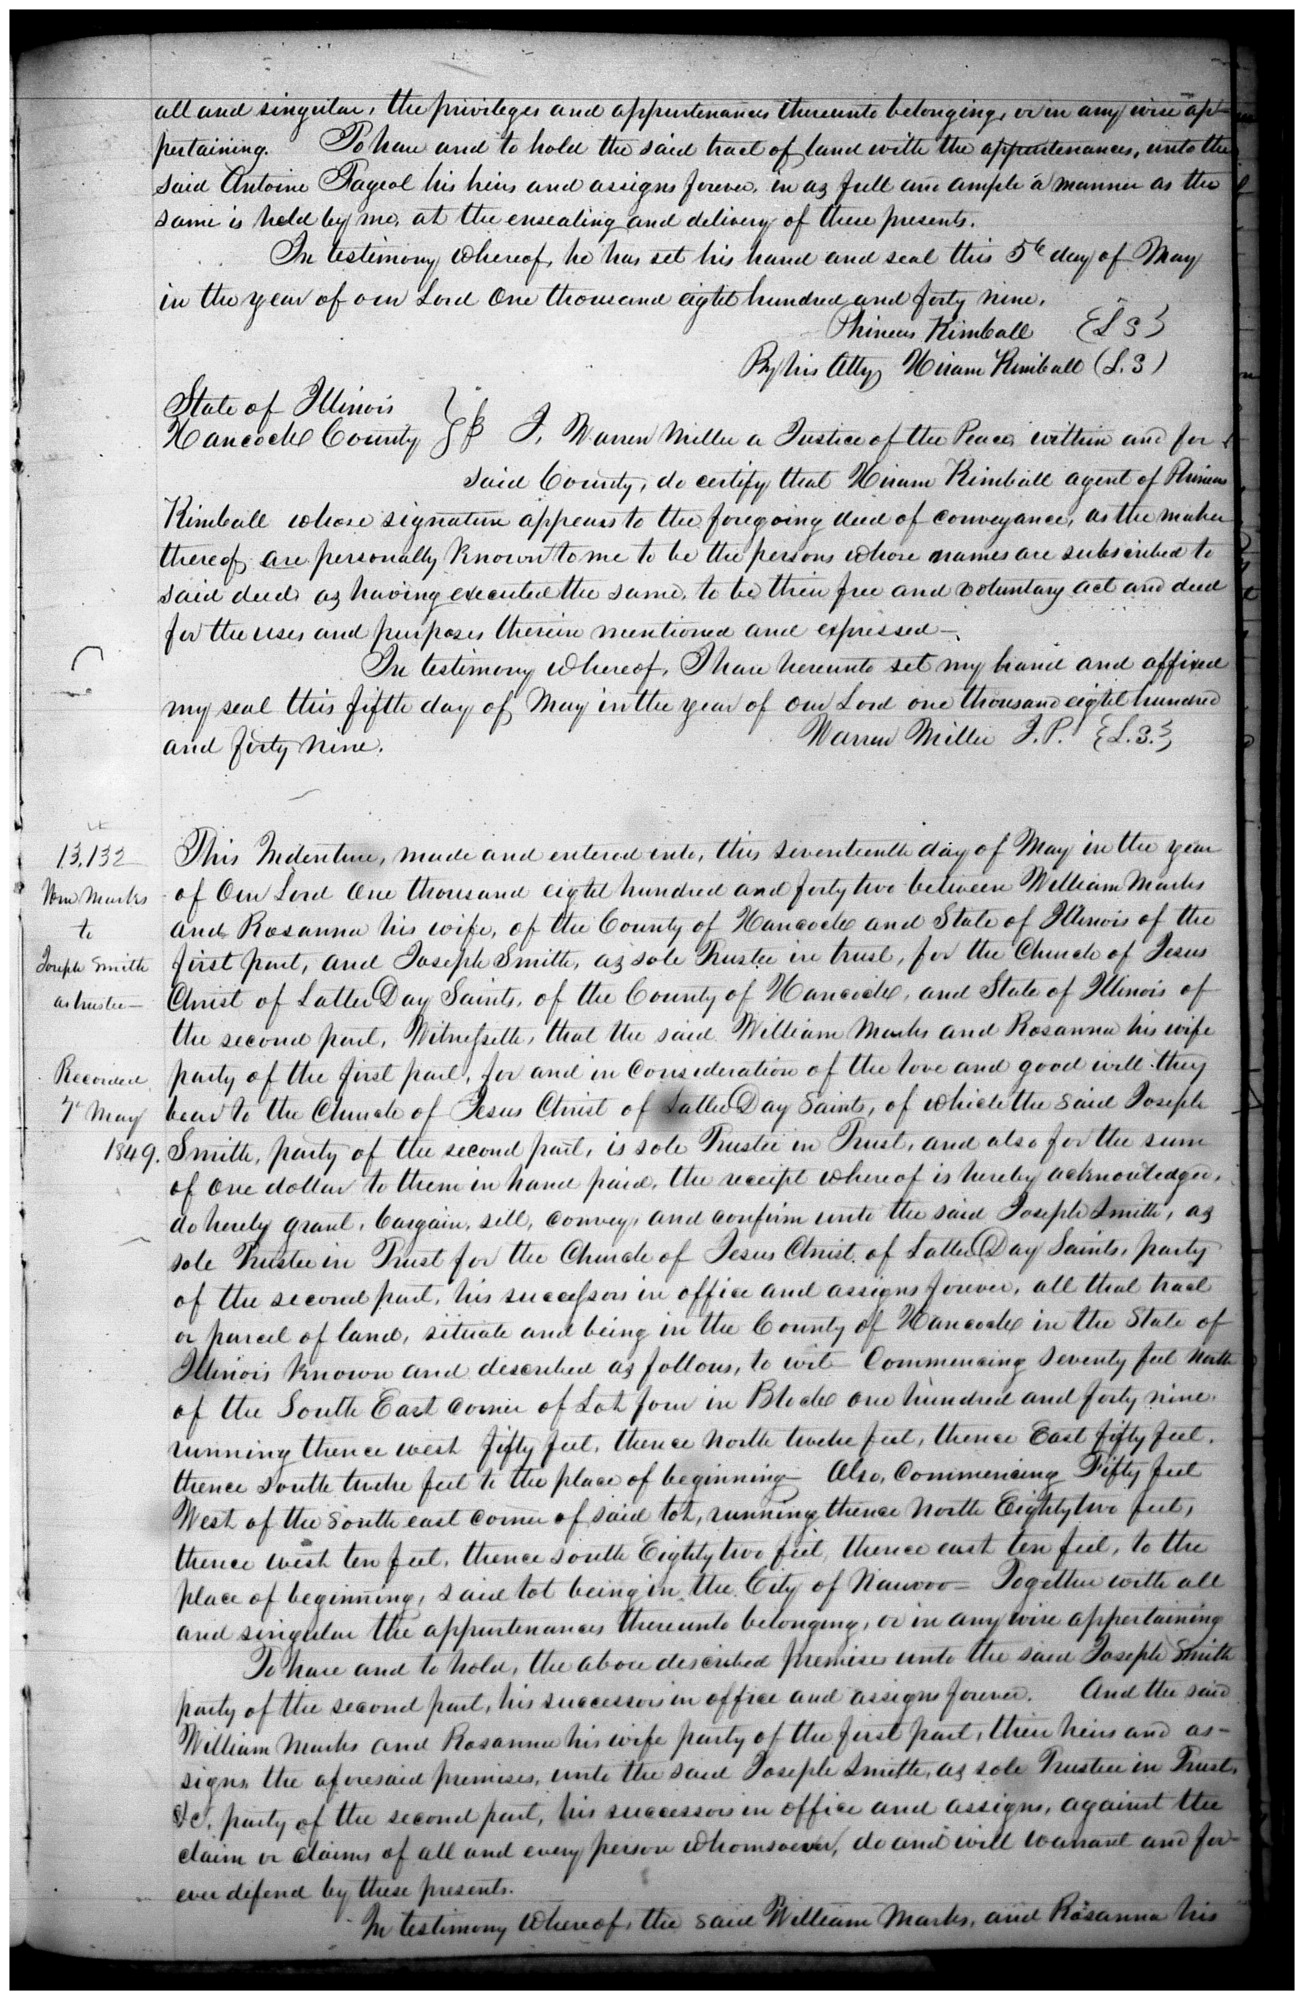 all and singular, the privileges and appurtenances thereunto belonging, or in any wise ap-
pertaining. To have and to hold the said tract of land with the appurtenances, unto the
said Antoine Pageol his heirs and assigns forever, in as full and ample a manner as the
same is held by me, at the ensealing and delivery of these presents.
In testimony whereof, he has set his hand and seal this 5th day of May
in the year of our Lord One thousand eight hundred and forty nine.
Phineas Kimball {L S}
By his Atty Hiram Kimball (L.S)
State of Illinois
Hancock County } ss I, Warren Miller a Justice of the Peace, within and for
said County, do certify that Hiram Kimball agent of Phineas
Kimball whose signature appears to the foregoing deed of conveyance, as the maker
thereof, are personally known to me to be the persons whose names are subscribed to
said deed as having executed the same, to be their free and voluntary act and deed
for the uses and purposes therein mentioned and expressed—
In testimony whereof, I have hereunto set my hand and affixed
my seal this fifth day of May in the year of our Lord one thousand eight hundred
and forty nine. Warren Miller J.P. {L.S.}
13,132
Wm Marks
to
Joseph Smith
as trustee—
Recorded
7th May
1849.
This Indenture, made and entered into, this seventeenth day of May in the year
of Our Lord One thousand eight hundred and forty two between William Marks
and Rosanna his wife, of the County of Hancock and State of Illinois of the
first part, and Joseph Smith, as sole Trustee in trust, for the Church of Jesus
Christ of Latter Day Saints, of the County of Hancock, and State of Illinois of
the second part, Witnesseth, that the said William Marks and Rosanna his wife
party of the first part, for and in consideration of the love and good will they
bear to the Church of Jesus Christ of Latter Day Saints, of which the said Joseph
Smith, party of the second part, is sole Trustee in Trust, and also for the sum
of One dollar to them in hand paid, the receipt whereof is hereby acknowledged,
do hereby grant, bargain, sell, convey, and confirm unto the said Joseph Smith, as
sole Trustee in Trust for the Church of Jesus Christ of Latter Day Saints, party
of the second part, his successors in office and assigns forever, all that tract
or parcel of land, situate and being in the County of Hancock in the State of
Illinois known and described as follows, to wit— Commencing seventy feet North
of the South East corner of Lot four in Block one hundred and forty nine,
running thence west fifty feet, thence North twelve feet, thence East fifty feet,
thence south twelve feet to the place of beginning— Also, Commencing Fifty feet
West of the South east corner of said lot, running thence North Eighty two feet,
thence west ten feet, thence south Eighty two feet, thence east ten feet, to the
place of beginning, said lot being in the City of Nauvoo— Together with all
and singular the appurtenances thereunto belonging, or in any wise appertaining
To have and to hold, the above described premises unto the said Joseph Smith
party of the second part, his successors in office and assigns forever. And the said
William Marks and Rosanna his wife party of the first part, their heirs and as-
signs, the aforesaid premises, unto the said Joseph Smith, as sole Trustee in Trust,
&c, party of the second part, his successors in office and assigns, against the
claim or claims of all and every person whomsoever, do and will warrant and for-
ever defend by these presents.
In testimony Whereof, the said William Marks, and Rosanna his